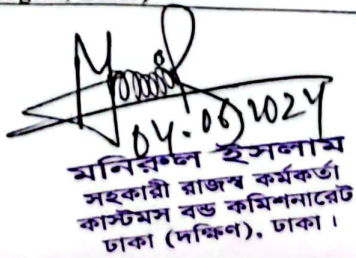 04.06.2024
মনিরুল ইসলাম
সহকারী রাজস্ব কর্মকর্তা
কাস্টমস বন্ড কমিশনারেট
ঢাকা (দক্ষিণ), ঢাকা।